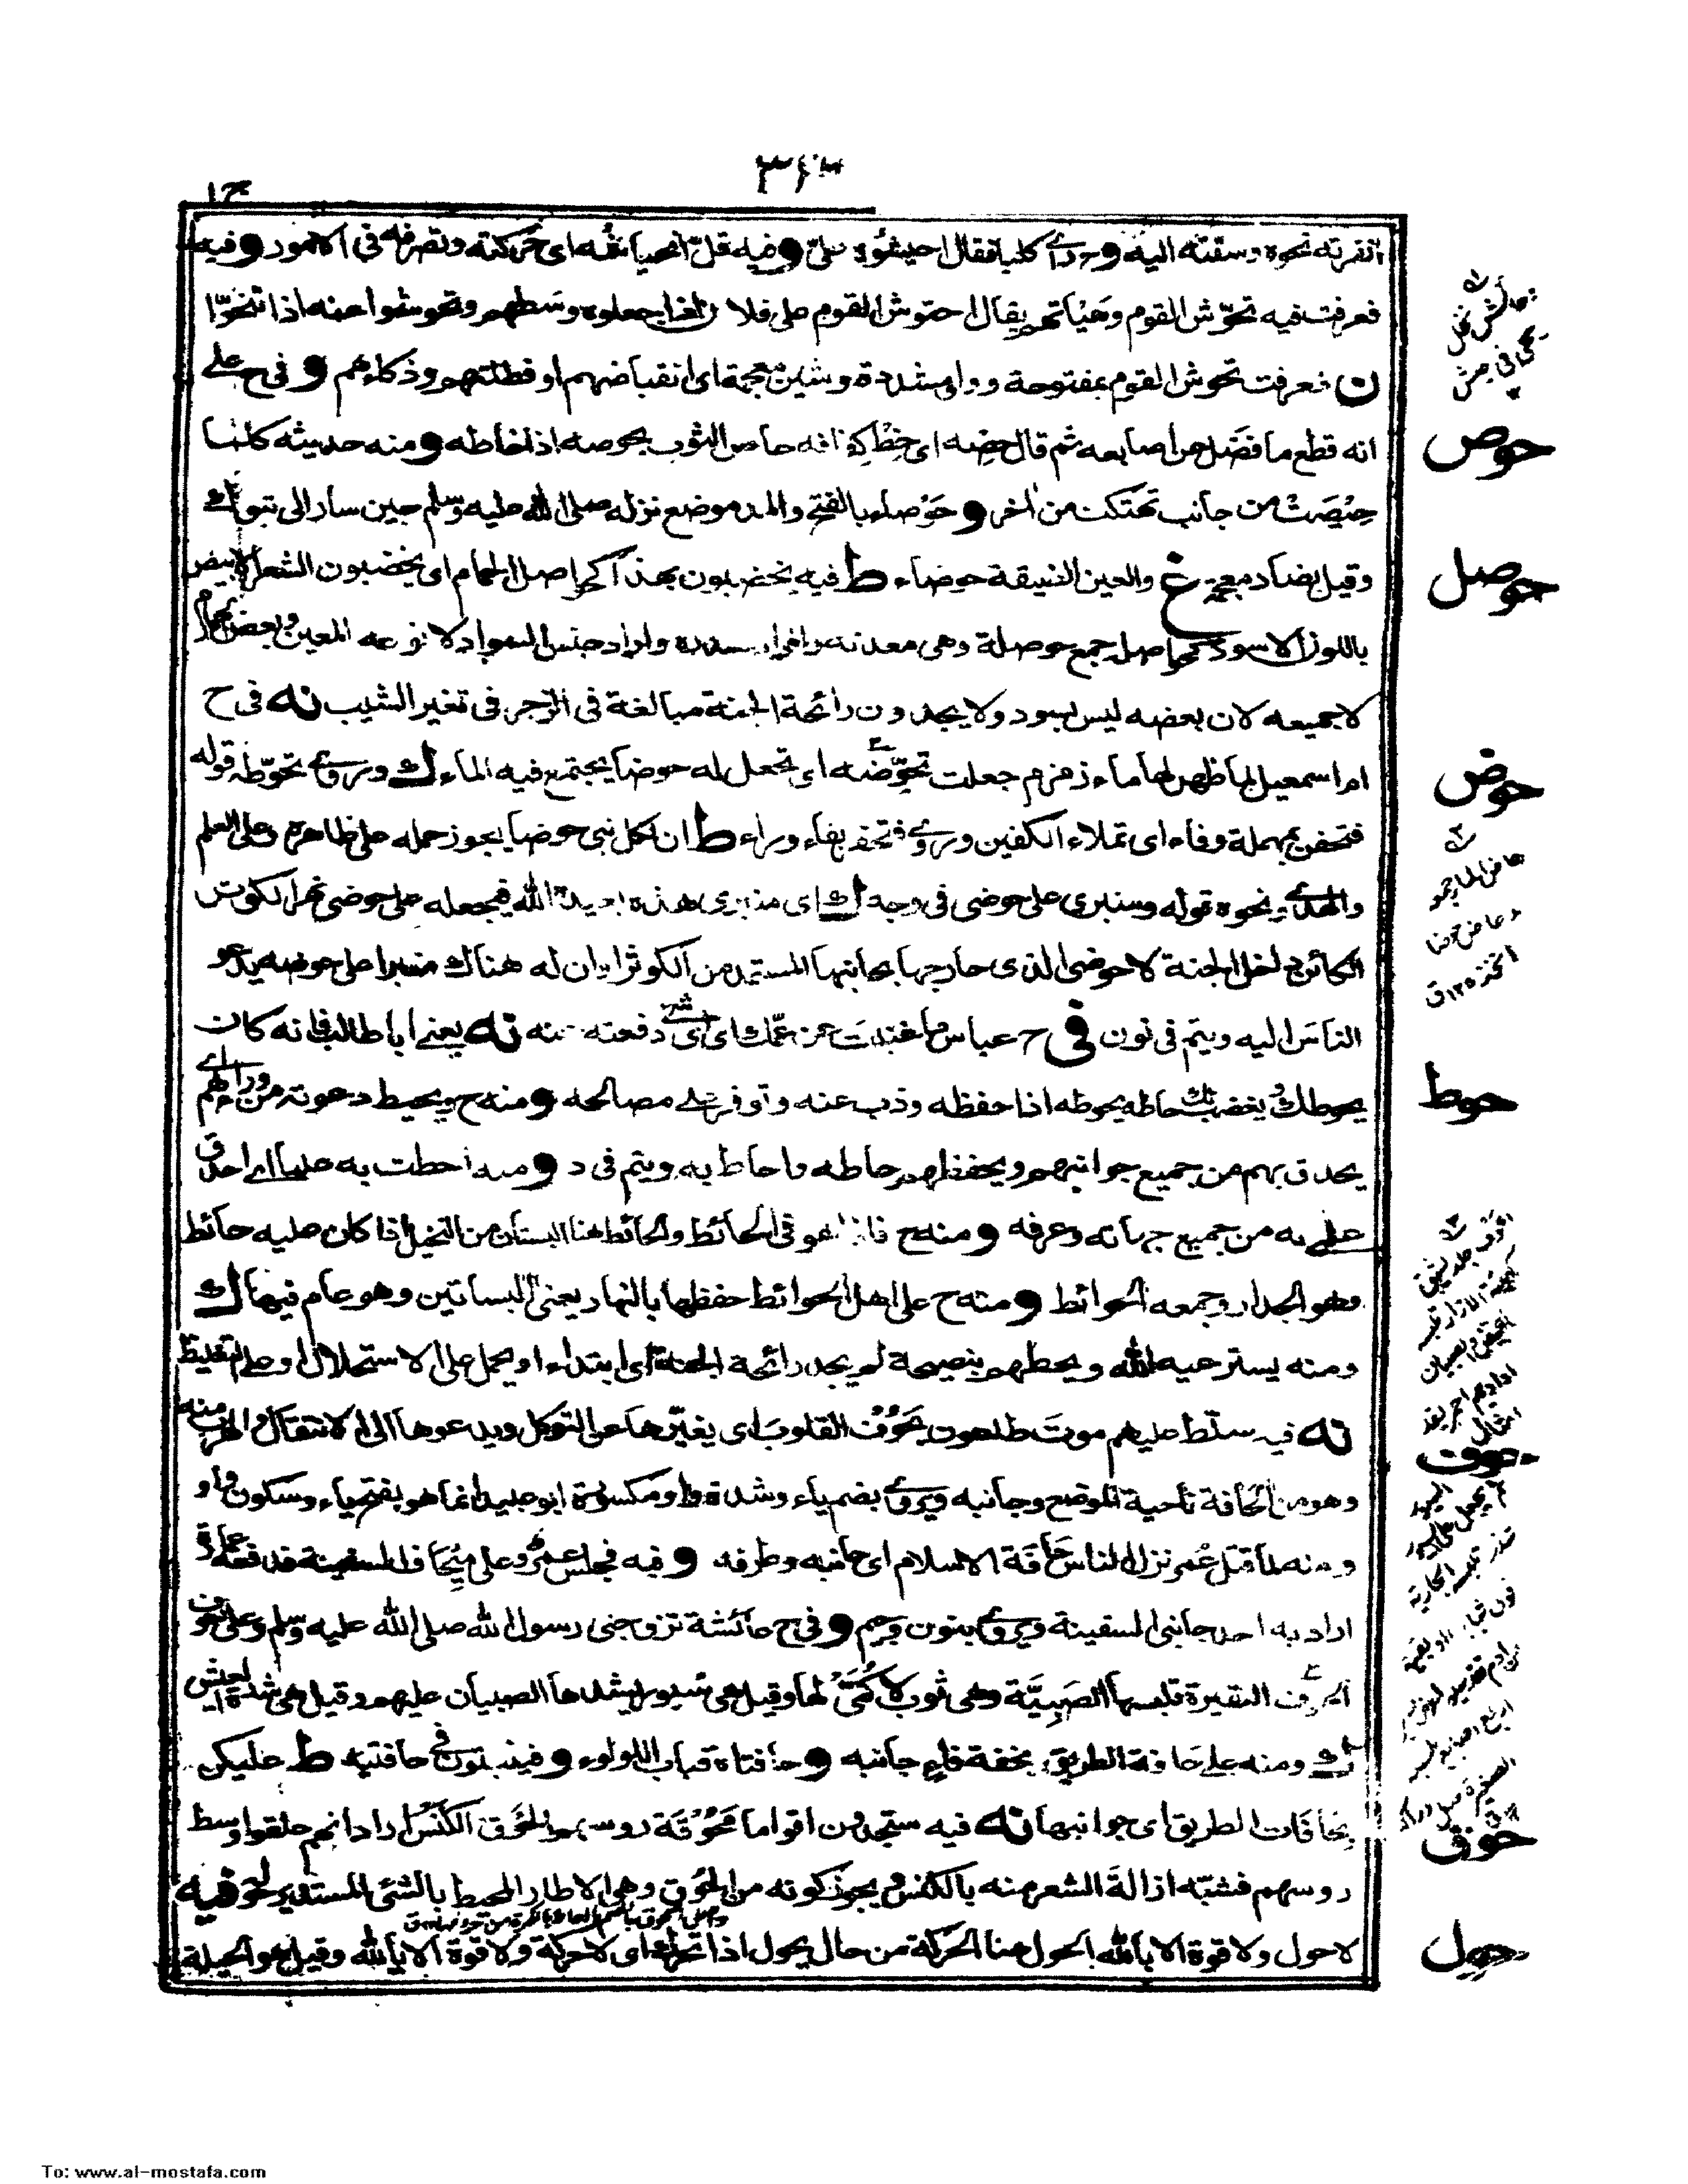 انفرته نحوه وسقته اليه و ح رأى كلبا فقال احيشوه علىّ و فيه قلّ انحياشه اى حركته وتصرفه فى الامور وفيه
فعرفت فيه تحوّش القوم وهيأتهم يقال احتوش القوم على فلان اذا جعلوه وسطهم وتحوشوا عنه اذا تنحّوا
ن فعرفت تحوش القوم بمفتوحة وواو مشددة وشين معجمة اى انقباضهم او فطنتهم وذكاءهم و فى ح على
انه قطع ما فضل من اصابعه ثم قال حصه اى خط كفافه حاص الثوب يحوصه اذا خاطه ومنه حديثه كلما
حيصت من جانب تهتكت من اخر و حوصاء بالفتح والمد موضع نزله صلى الله عليه وسلم حين سار الى تبوك
وقيل بضاد معجمة غ والعين الضيقة حوصاء ط فيه يخضبون بهذا كحواصل الحمام اى يخضبون الشعر الابيض
باللون الاسود كحواصل جمع حوصلة وهى معدته واراد جنس السواد لا نوعه المعين وبعض الحمام
لا جميعه لان بعضه ليس بسود ولا يجدون رائحة الجنة مبالغة فى الزجر فى تغير الشيب نه فى ح
ام اسمعيل لما ظهر لها ماء زمزم جعلت تحوّضه اى تجعل له حوضا يجتمع فيه الماء ك وروى تحوّطه قوله
فتحفن بمهملة وفاء اى تملاء الكفين وروى فتحفر بفاء وراء ط ان لكل نبى حوضا يجوز حمله على ظاهره وعلى العلم
والهدى ونحوه قوله ومنبرى على حوضى فى وجه ك اى منبرى هذه يعيده الله فيجعله على حوضى نهر الكوثر
الكائن داخل الجنة لا حوضى الذى خارجها بجانبها المستمد من الكوثر او ان له هناك منبرا على حوضه يدعو
الناس اليه ويتم فى نون فى ح عباس ما اغنيت عن عمك اى اى شئ دفعته عنه نه يعنى ابا طالب فانه كان
يحوطك ويغضب لك حاطه يحوطه اذا حفظه وذب عنه وتوفر على مصالحه و منه ح ويحيط دعوته من ورائهم
يحدق بهم من جميع جوانبهم ويحفظهم حاطه واحاط به ويتم فى د و منه احطت به علما اى احدق
علمى به من جميع جهاته وعرفه و منه ح فاذا هو فى الحائط والحائط هنا البستان من النخيل اذا كان عليه حائط
وهو الجدار وجمعه الحوائط و منه ح على اهل الحوائط حفظها بالنهار يعنى البساتين وهو عام فيها ك
ومنه يسترعيه الله ويحطهم بنصيحة لم يجد رائحة الجنة اى ابتداء او يحمل على الاستحلال او على التغليظ
نه فيه سلّط عليهم موت طاعون يحوّف القلوب اى يغيّرها عن التوكل ويدعوها الى الانتقال والهرب منه
وهو من الحافة ناحية الموضع وجانبه ويروى بضم ياء وشدة واو مكسورة ابو عبيد انما هو بفتح ياء وسكون واو
ومنه لما قتل عمر نزل الناس حافة الاسلام اى جانبه وطرفه و فيه فجلس عمرو على ميحاف السفينة فدفعه عمارة
اراد به احد جانبى السفينة ويروى بنون وجيم و فى ح عائشة تزوجنى رسول الله صلى الله عليه وسلم وعلىّ حوف
الحوف البقيرة تلبسها الصبيّة وهى ثوب لا كمّى لها وقيل هى سيور يشدها الصبيان عليهم وقيل هى شدة العيش
ك ومنه على حافة الطريق بخفة فاء جانبه و حافتاه قباب اللؤلؤ و فينبتون فى حافتيه ط عليكن
بحافات الطريق اى جوانبها نه فيه ستجدون اقواما محوّقة روسهم الحوق الكنس اراد انهم حلقوا وسط
روسهم فشبّه ازالة الشعر منه بالكنس ويجوز كونه من الحوق وهو الاطار المحيط بالشئ المستدير حوله فيه
لا حول ولا قوة الا بالله الحول هنا الحركة من حال يحول اذا تحرك اى لا حركة ولا قوة الا بالله وقيل هو الحيلة
حوص
حوصل
حوض
حوط
حوف
حوق
حول
To: www.al-mostafa.com